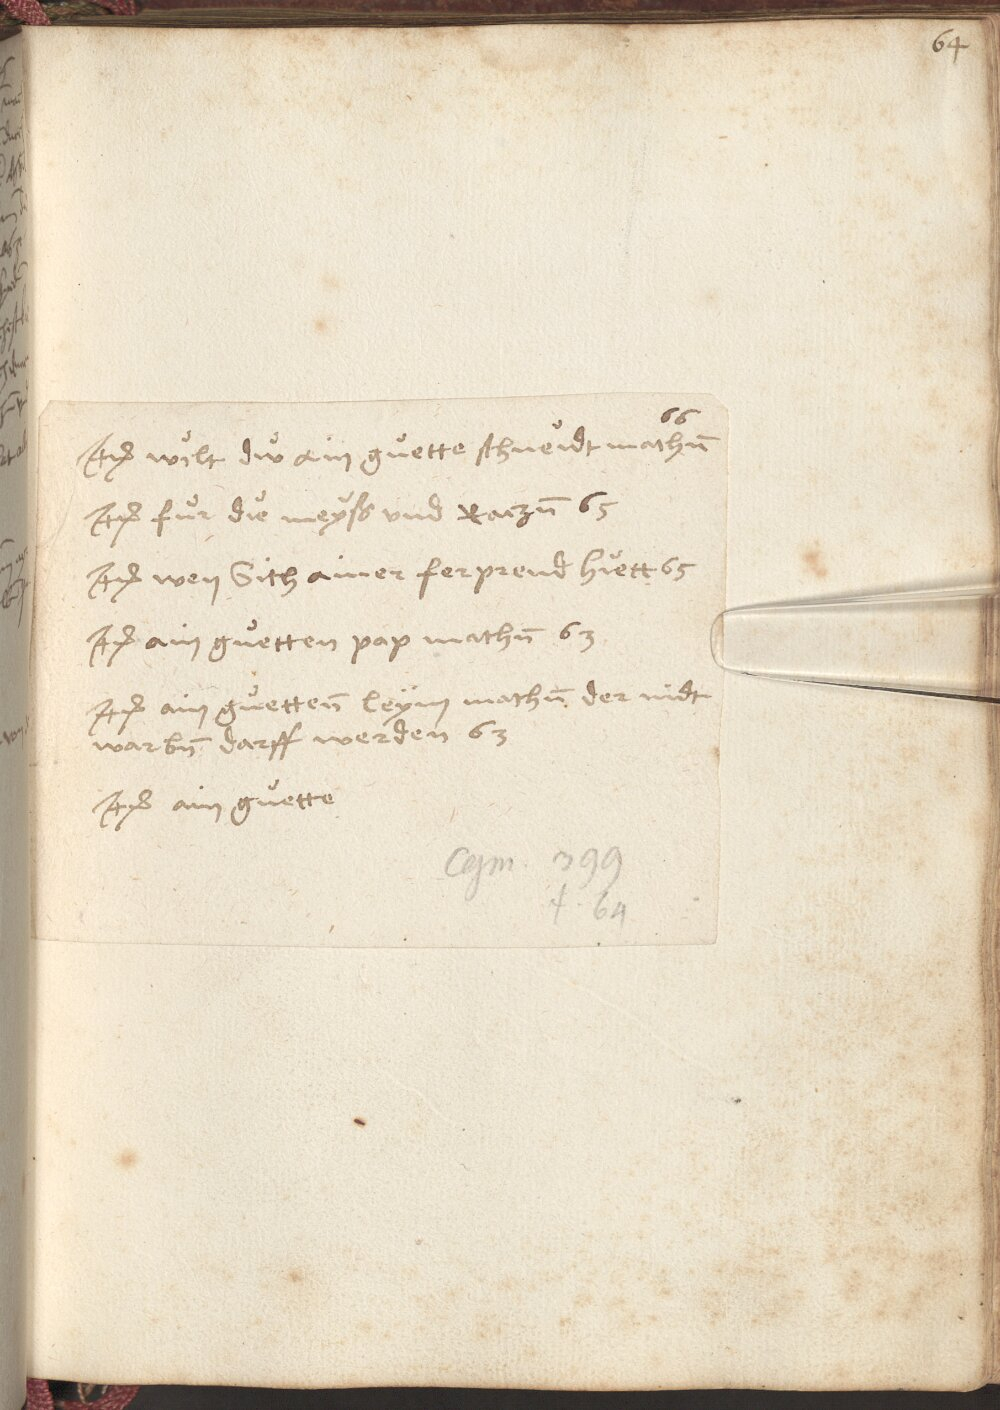 64
66
Itͫ wilt dw ain guette schneidt machn̄
Itͫ fur die meyss vnd Raczn̄ 65
Itͫ wen Sich ainer ferprend hiett 65
Itͫ ain guetten pap machn̄ 63
Itͫ ain guettenn̄ leym machn̄ der nidt
warbn̄ darff werden 63
Itͫ ain guette
Cgm. 399
f. 64